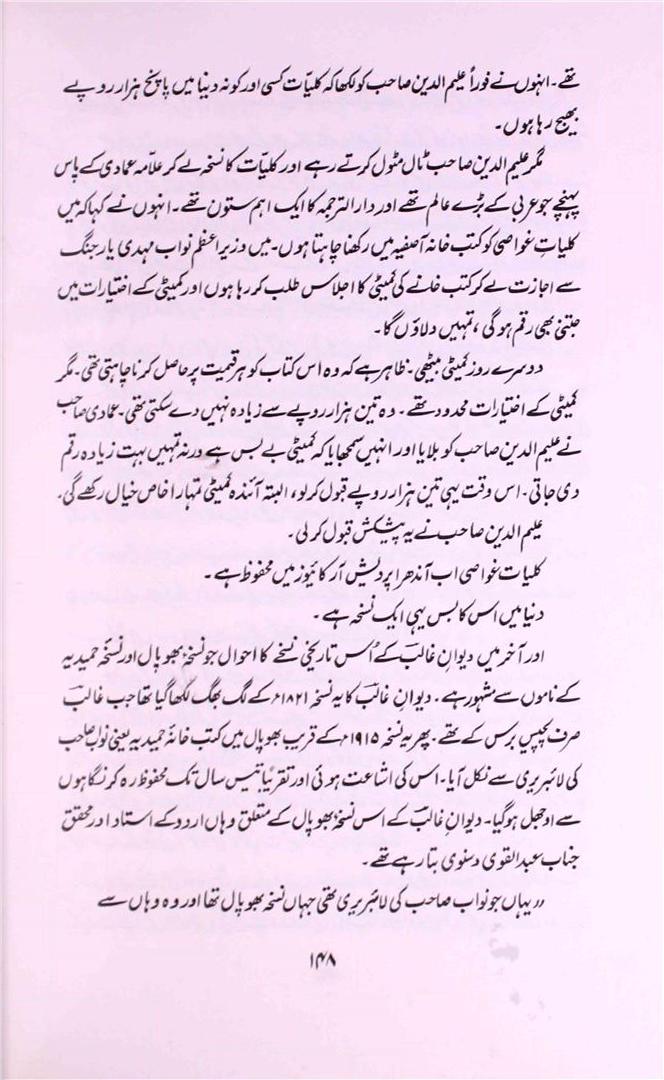 تھے۔ انہوں نے فوراً علیم الدین صاحب کو لکھا کہ کلیّات کسی اور کو نہ دینا میں پانچ ہزار روپے
بھیج رہا ہوں۔
مگر علیم الدین صاحب ٹال مٹول کرتے رہے اور کلیات کا نسخہ لے کر علامہ عمادی کے پاس
پہنچے جو عربی کے بڑے عالم تھے اور دارالترجمہ کا ایک اہم ستون تھے۔ انہوں نے کہا کہ میں
کلیاتِ غواصی کو کتب خانہ آصفیہ میں رکھنا چاہتا ہوں۔ میں وزیراعظم نواب مہدی یار جنگ
سے اجازت لے کر کتب خانے کی کمیٹی کا اجلاس طلب کر رہا ہوں اور کمیٹی کے اختیارات میں
جتنی بھی رقم ہوگی ، تمہیں دلاؤں گا۔
دوسرے روز کمیٹی بیٹھی۔ ظاہر ہے کہ وہ اس کتاب کو ہر قیمت پر حاصل کرنا چاہتی تھی۔ مگر
کمیٹی کے اختیارات محدود تھے۔ وہ تین ہزار روپے سے زیادہ نہیں دے سکتی تھی۔ عمادی صاحب
نے علیم الدین صاحب کو بلایا اور انہیں سمجھایا کہ کمیٹی بے بس ہے ورنہ تمہیں بہت زیادہ رقم
دی جاتی۔ اس وقت یہی تین ہزار روپے قبول کرلو ، البتہ آئندہ کمیٹی تمہارا خاص خیال رکھے گی۔
علیم الدین صاحب نے یہ پیشکش قبول کرلی۔
کلیات غواصی اب آندھرا پردیش آرکائیوز میں محفوظ ہے۔
دنیا میں اس کا بس یہی ایک نسخہ ہے۔
اور آخر میں دیوانِ غالبؔ کے اُس تاریخی نسخے کا احوال جو نسخۂ بھوپال اور نسخۂ حمیدیہ
کے ناموں سے مشہور ہے۔ دیوانِ غالبؔ کا یہ نسخہ ۱۸۲۱ء کے لگ بھگ لکھا گیا تھا جب غالبؔ
صرف پچیس برس کے تھے۔ پھر یہ نسخہ ۱۹۱۵ء کے قریب بھوپال میں کتب خانۂ حمیدیہ یعنی نواب صاحب
کی لائبریری سے نکل آیا۔ اس کی اشاعت ہوئی اور تقریباً تیس سال تک محفوظ رہ کر نگاہوں
سے اوجھل ہوگیا۔ دیوانِ غالبؔ کے اس نسخۂ بھوپال کے متعلق وہاں اردو کے استاد اور محقق
جناب عبدالقوی دسنوی بتا رہے تھے۔
”یہاں جو نواب صاحب کی لائبریری تھی جہاں نسخہ بھوپال تھا اور وہ وہاں سے
۱۴۸